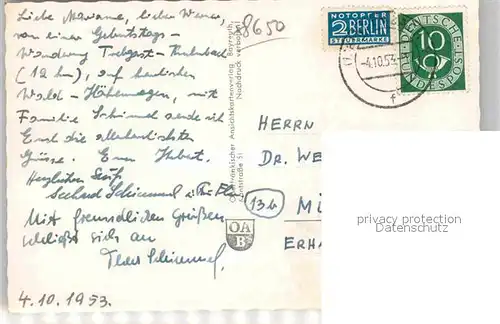 Liebe Marianne, lieber Werner,
von einer Geburtstags-
Wanderung Trebgast -
(12 km), auf herrlichen
Wald- Höhenwegen, mit
Familie Schimmel sende ich
Euch die allerherzlichsten
Grüsse. Euer Hubert.
Herzlichen Gruß
Schimmel u. Frau
Mit freundlichen Grüßen
schließt sich an
Schimmel.
4.10.1953.
8650
Oberfränkischer Ansichtskartenverlag Bayreuth
51
Nachdruck verboten
OA
B
NOTOPFER
2 BERLIN
STEUERMARKE
-4.10.53
f
DEUTSCHE
BUNDESPOST
10
HERRN
DR. WE
13b
MÜ
ERHA
privacy protection
Datenschutz